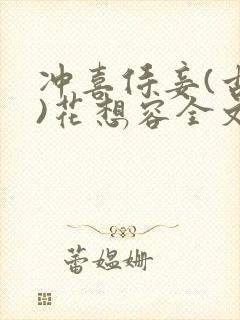 冲喜侍妾(古
)花想容全文
蕾媪姗